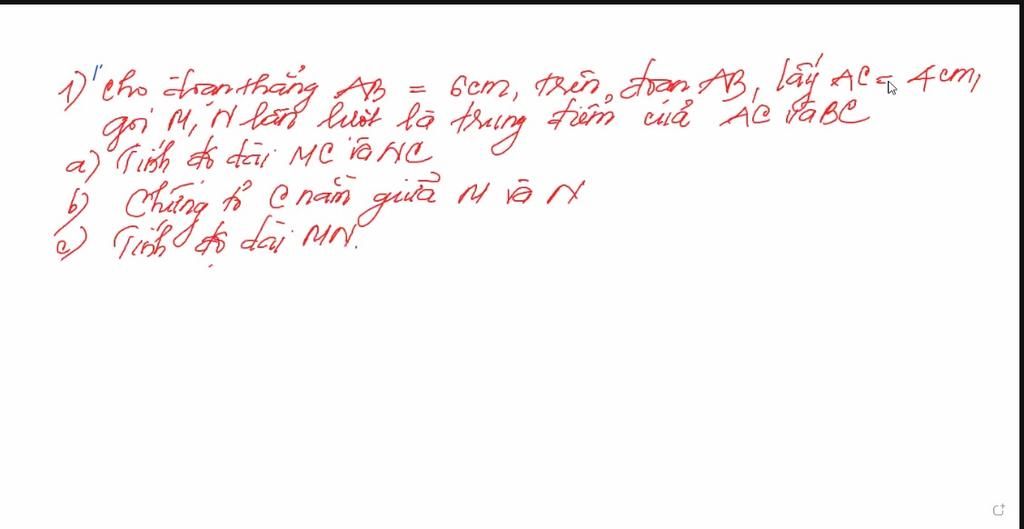 1) Cho đoạn thẳng AB = 6cm, trên đoạn AB, lấy AC = 4cm,
gọi M, N lần lượt là trung điểm của AC và BC
a) Tính độ dài MC và NC
b) Chứng tỏ C nằm giữa M và N
c) Tính độ dài MN.